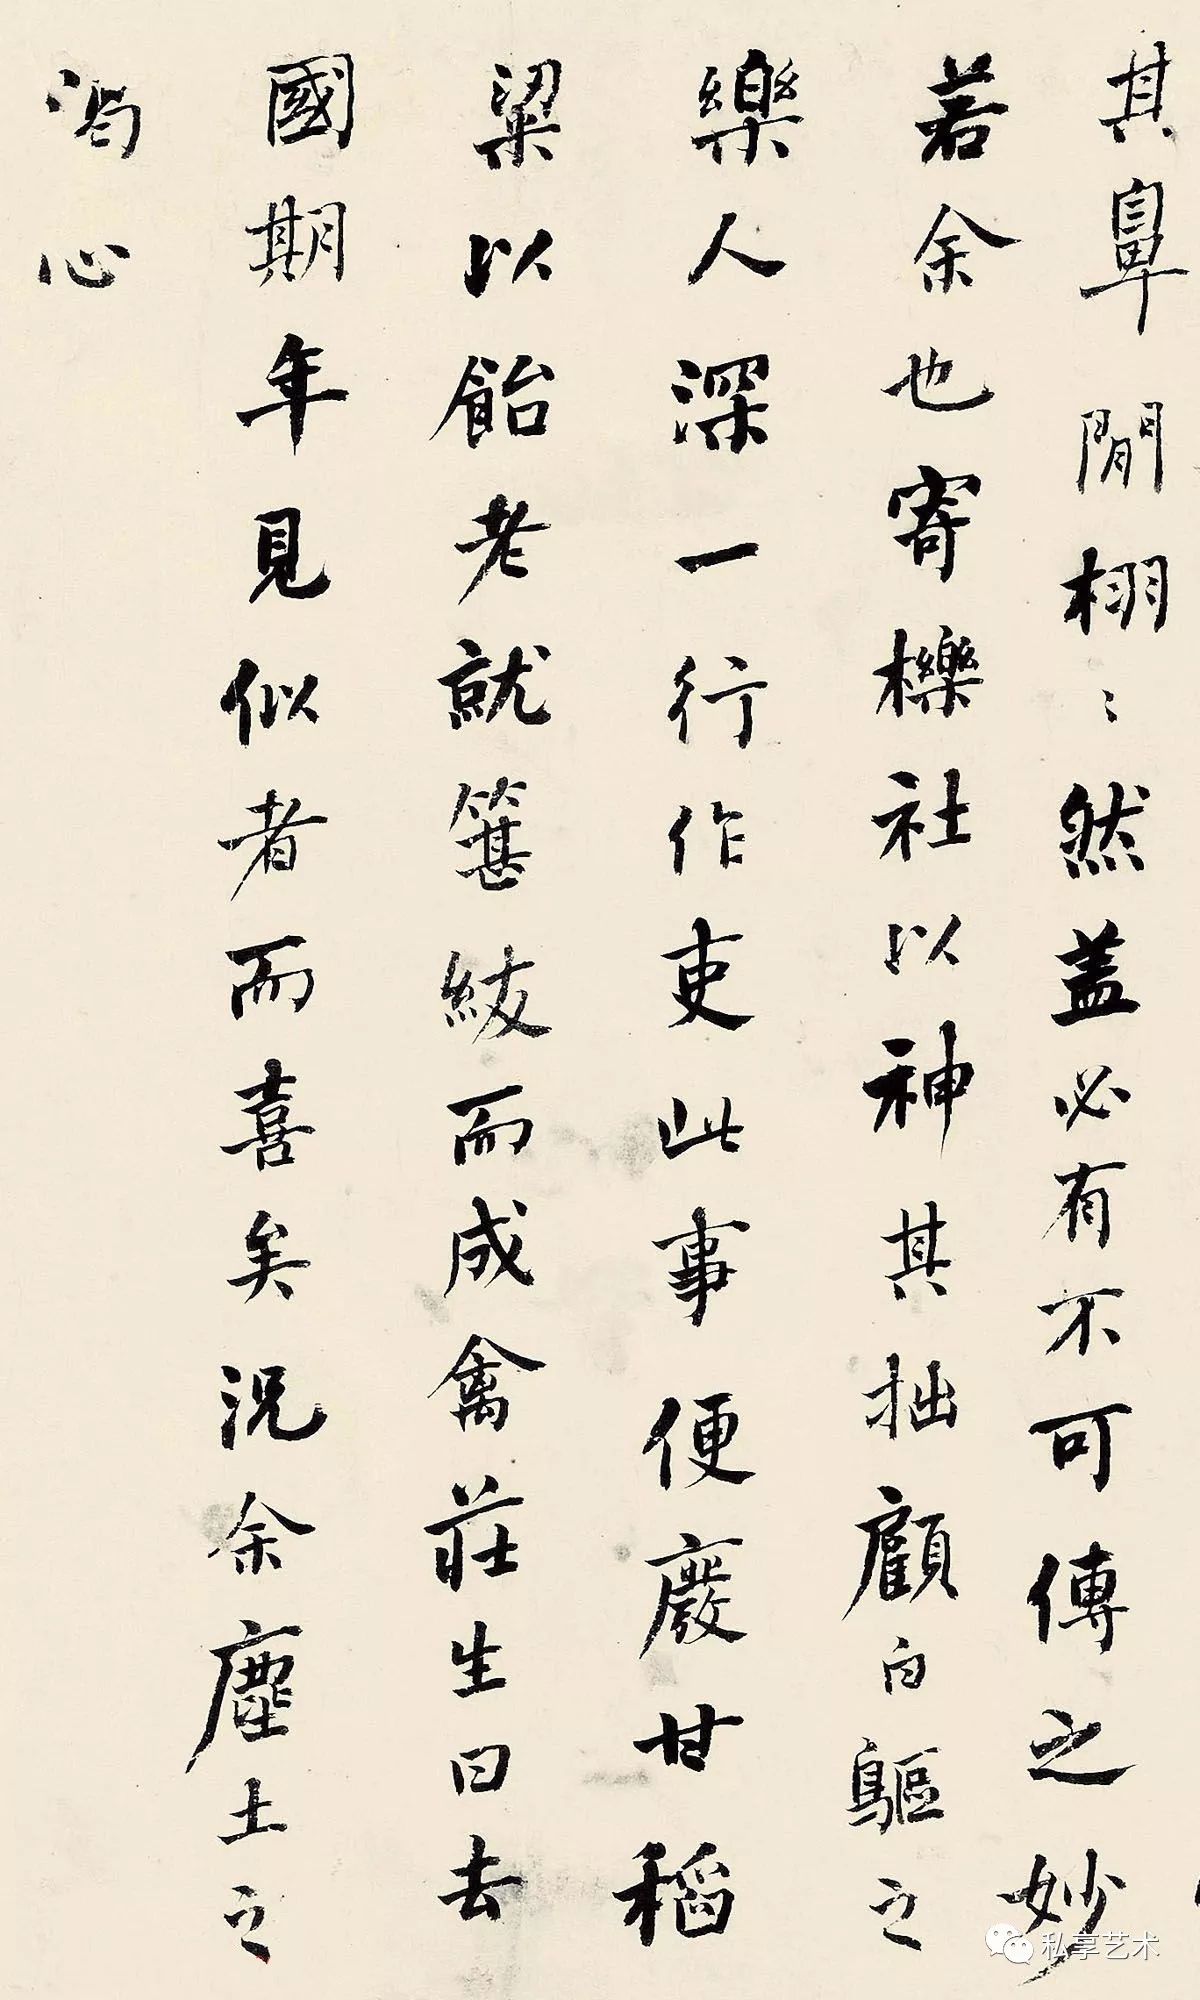 其鼻閒栩〻然盖必有不可傳之妙
若余也寄櫟社以神其拙顧白鷗之
樂人深一行作吏此事便廢甘稻
粱以飴老就簪紱而成禽莊生曰去
國期年見似者而喜矣況余塵土之
渴心
私享艺术